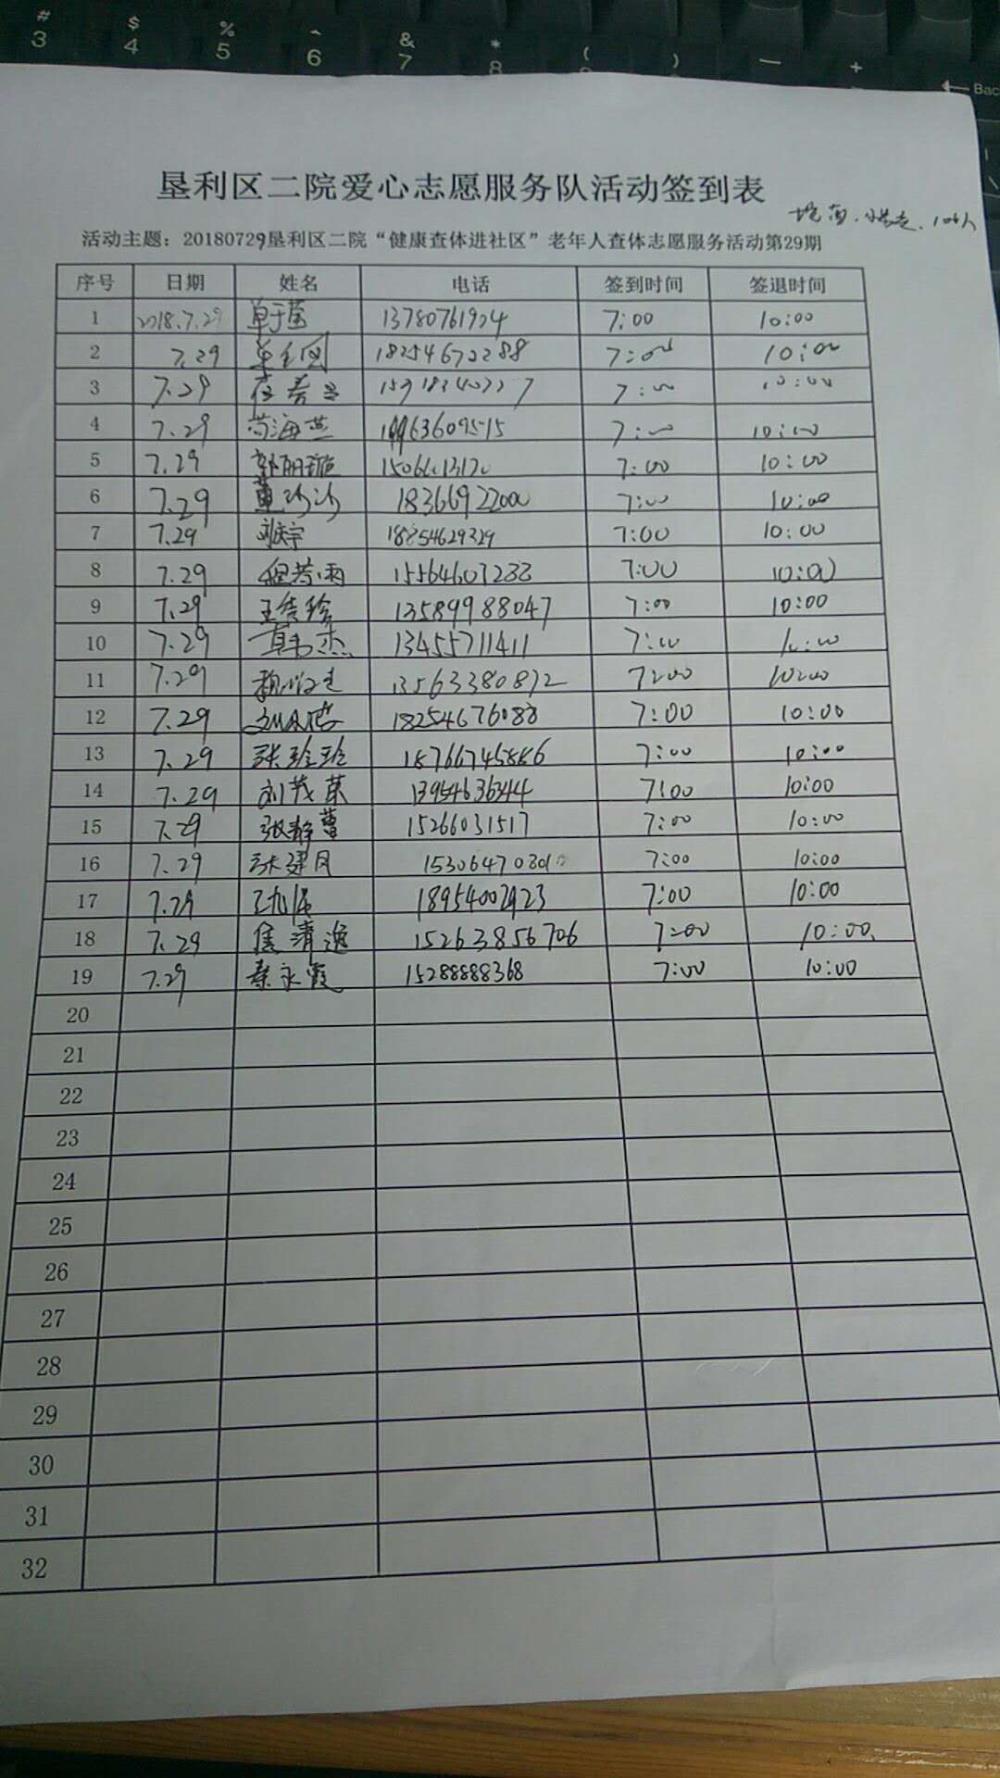 # $ % ^ & * ( ) — +
3 4 5 6 7 8
Bac
垦利区二院爱心志愿服务队活动签到表
活动主题：20180729垦利区二院“健康查体进社区”老年人查体志愿服务活动第29期
序号 日期 姓名 电话 签到时间 签退时间
1 2018.7.29 13780761924 7:00 10:00
2 7.29 7:00 10:00
3 7.29 7:00 10:00
4 7.29 海燕 7:00 10:00
5 7.29 7:00 10:00
6 7.29 董沙沙 18366922000 7:00 10:00
7 7.29 刘庆宇 18854629329 7:00 10:00
8 7.29 程若雨 15564603233 7:00 10:00
9 7.29 13589988047 7:00 10:00
10 7.29 韩杰 13455711411 7:00 10:00
11 7.29 13563380872 7:00 10:00
12 7.29 18254676088 7:00 10:00
13 7.29 张珍珍 18766745886 7:00 10:00
14 7.29 刘茂荣 13954636344 7:00 10:00
15 7.29 张静蕾 15266031517 7:00 10:00
16 7.29 张建风 7:00 10:00
17 7.29 18954002923 7:00 10:00
18 7.29 焦清逸 15263856706 7:00 10:00
19 7.29 秦永霞 15288888368 7:00 10:00
20
21
22
23
24
25
26
27
28
29
30
31
32